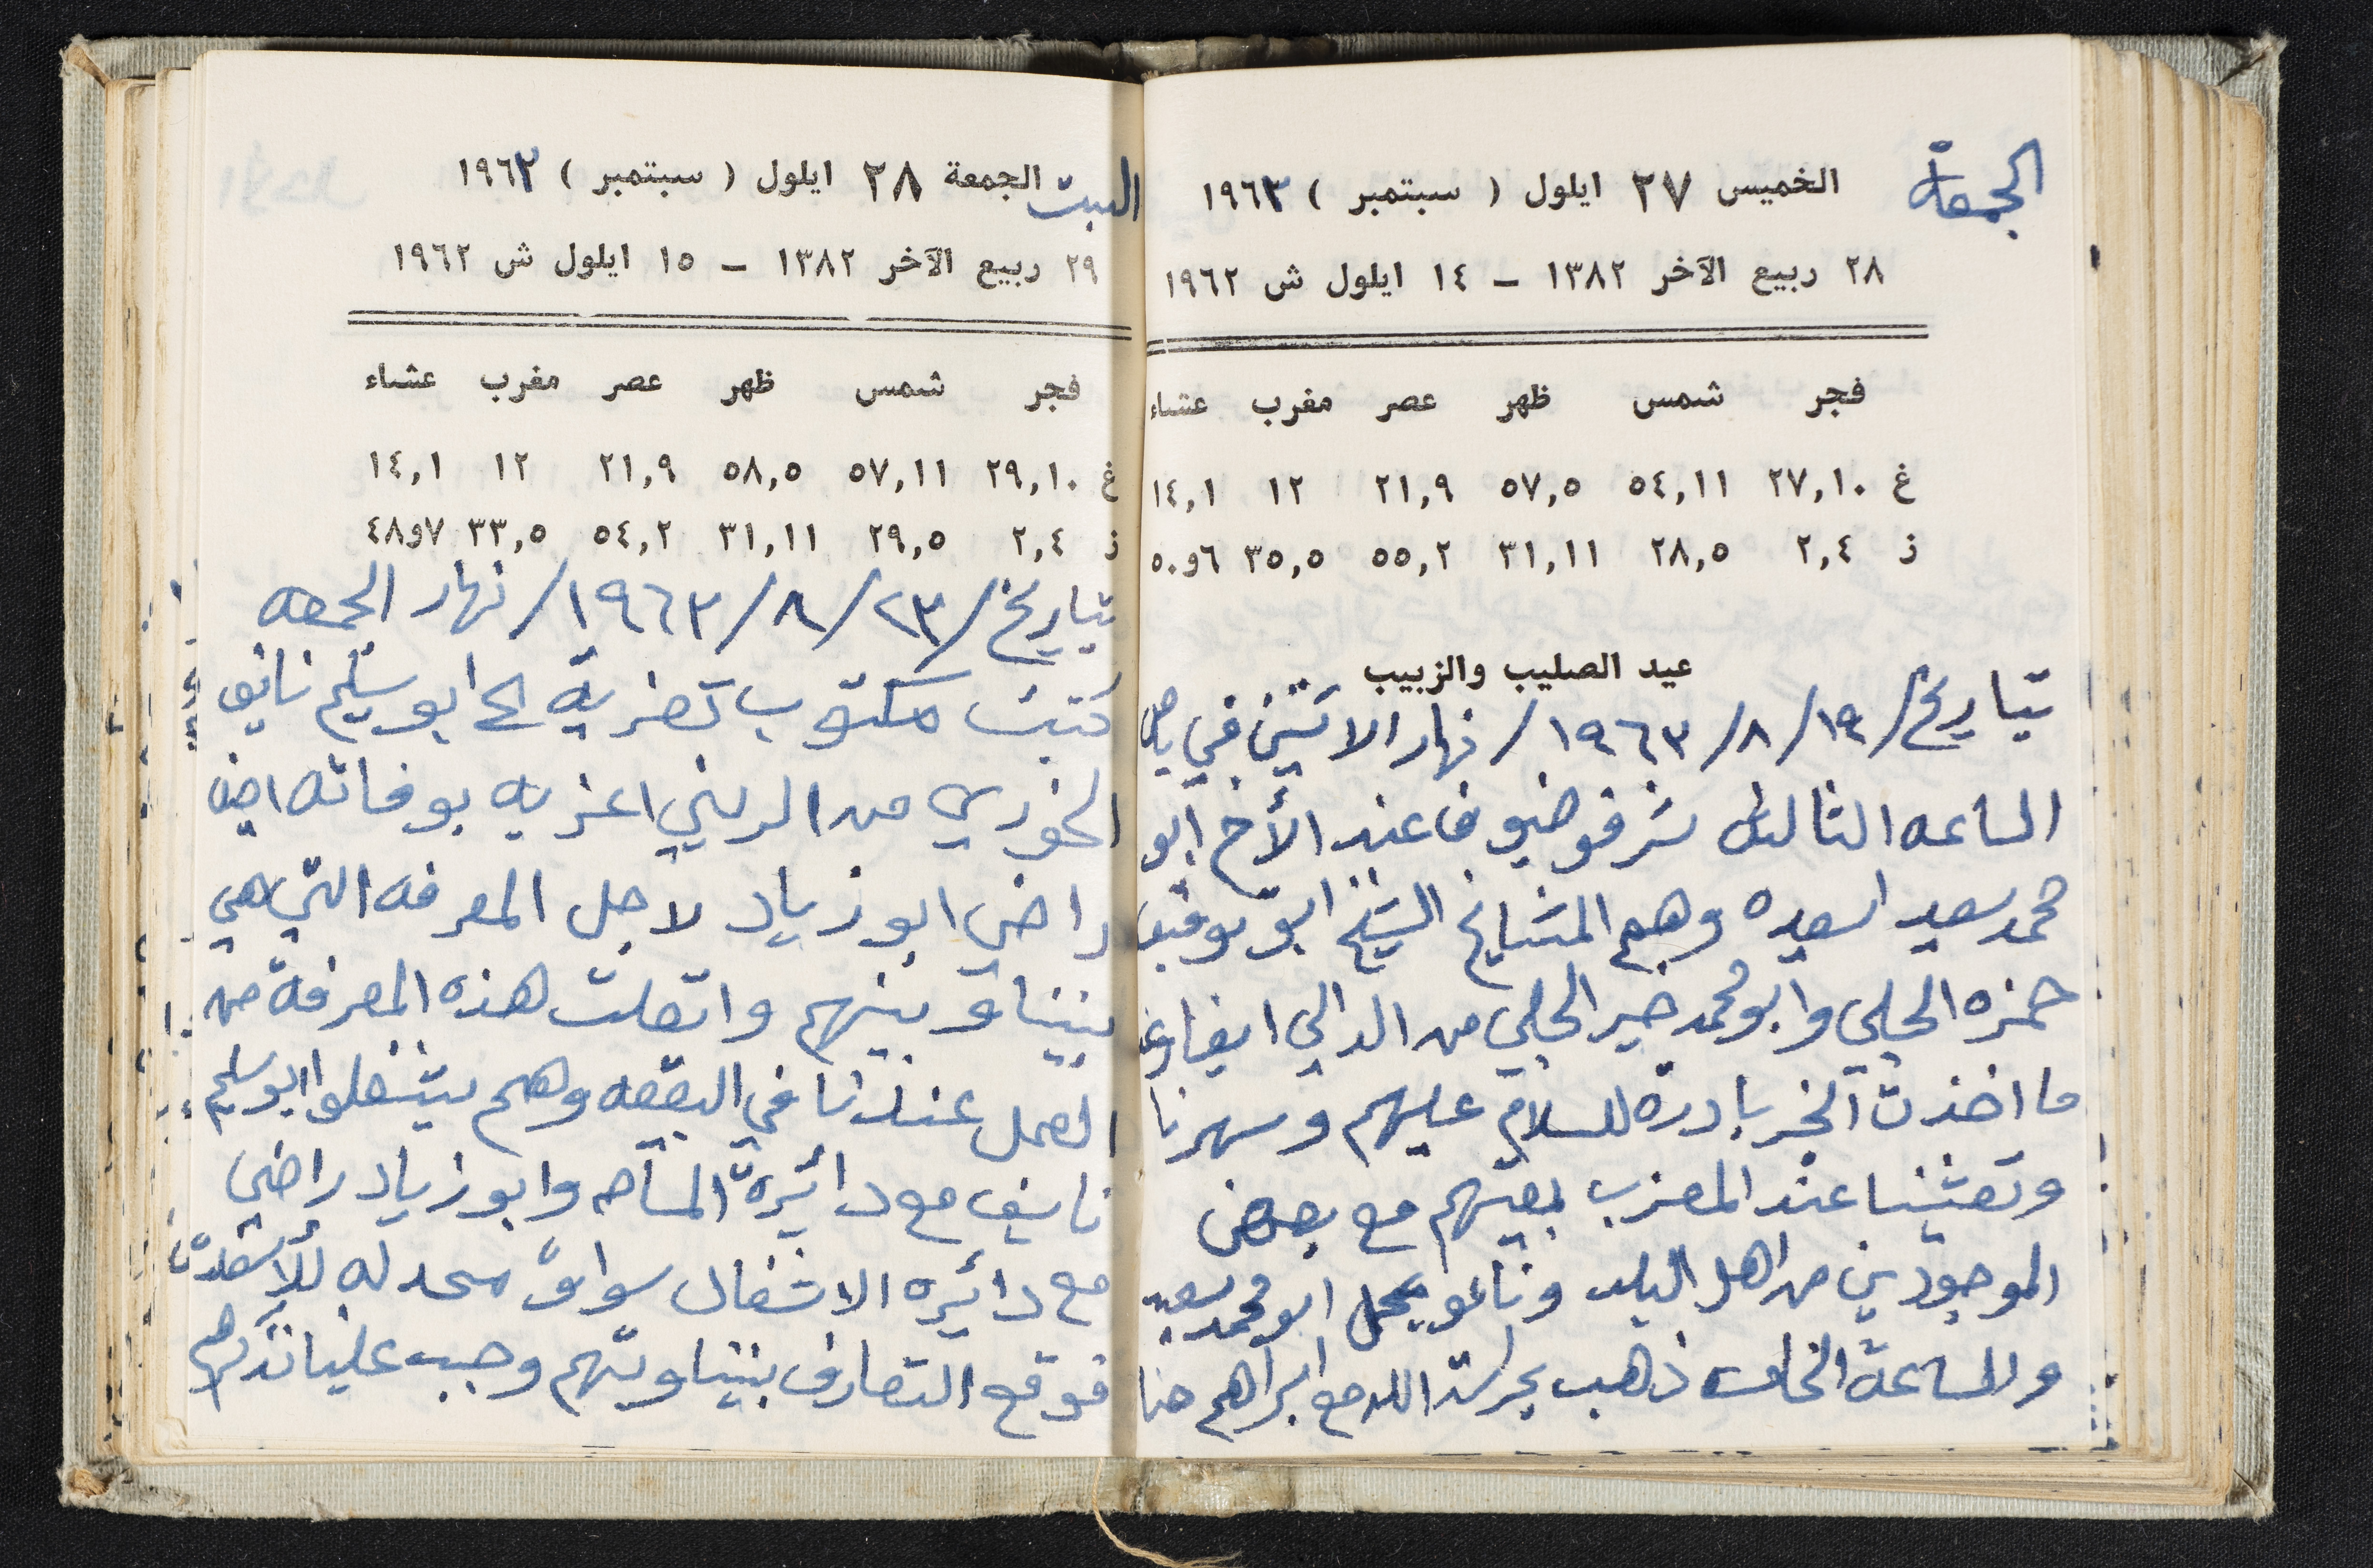 الجمعة
الخميس ٢٧ ايلول ( سبتمبر ) ١٩٦٣
٢٨ ربيع الآخر ١٣٨٢ – ١٤ ايلول ش ١٩٦٢
فجر شمس ظهر عصر مغرب عشاء
غ ٢٧,١٠ ٥٤,١١ ٥٧,٥ ٢١,٩ ١٢ ١٤,١
ز ٢,٤ ٢٨,٥ ٣١,١١ ٥٥,٢ ٣٥,٥ ٦و٥٠
عيد الصليب والزبيب
بتاريخ/١٩/٨/١٩٦٣/ نهار الاثنين في
الساعه الثالثه شرفو ضيوفا عند الأخ ابو
محمد سعيد اسعيده وهم المشايخ الشيخ ابو
حمزه الحلبي وابو محمد خير الحلبي من الدالي
ما اخذت الخبر بادرة للسلام عليهم وسهرنا
وتعشينا عند المعزب بمعيتهم مع بعض
الموجودين من اهل البلد ونامو بمحل ابو محمد سعيد
وللساعة الخامسه ذهب بحراسة الله مع ابراهيم حنا
السبت الجمعة ٢٨ ايلول ( سبتمبر ) ١٩٦٣
٢٩ ربيع الآخر ١٣٨٢ – ١٥ ايلول ش ١٩٦٢
فجر شمس ظهر عصر مغرب عشاء
غ ٢٩,١٠ ٥٧,١١ ٥٨,٥ ٢١,٩ ١٢ ١٤,١
ز ٢,٤ ٢٩,٥ ٣١,١١ ٥٤,٢ ٣٣,٥ ٧و٤٨
بتاريخ/٢٣/٨/١٩٦٣/ نهار الجمعه
كتبت مكتوب تعزية الى ابو سليم نايف
الخوري من الريني اعزيه بوفاته اخيه
راضي ابو زياد لاجل المعرفه التي هي
بيننا وبينهم واتصلت هذه المعرفة من
العمل عندنا في البقعه وهم يشغلوا ابو سليم
نايف مع دائيرة المساحه وابو زياد راضي
مع دائيره الاشغال سواق محدله
فوقع التعارف بيننا وبينهم وجب علينا نذكرهم